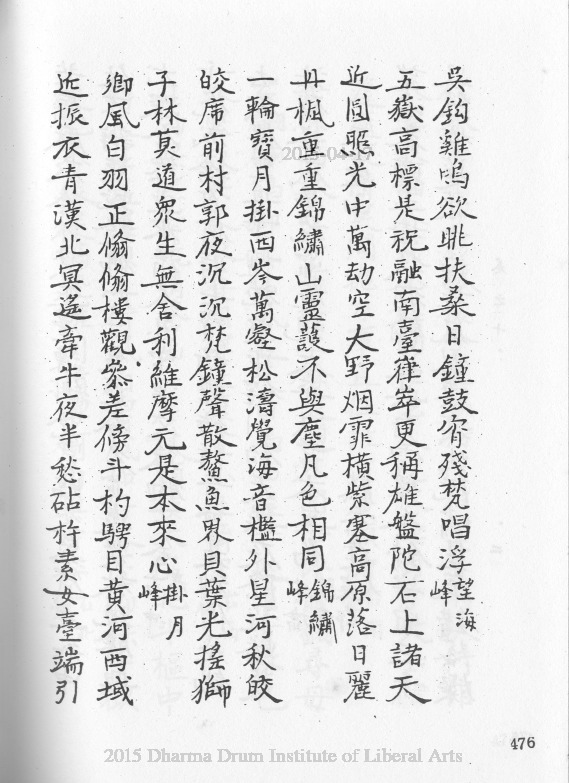 吳鈎雞鳴欲眺扶桑日鐘鼓宵殘梵唱浮望海峰
五嶽高標是祝融南臺嵂崒更稱雄盤陀石上諸天
近圓照光中萬劫空大野烟霏橫紫塞高原落日麗
丹楓重重錦繡山靈護不與塵凡色相同錦繡峰
一輪寶月掛西岑萬壑松濤覺海音檻外星河秋皎
皎席前村郭夜沉沉梵鐘聲散鰲魚界貝葉光搖獅
子林莫道眾生無舍利維摩元是本來心掛月峰
鄉風白羽正翛翛樓觀參差傍斗杓騁目黃河西域
近振衣青漢北冥遙牽牛夜半愁砧杵素女臺端引
476
2015 Dharma Drum Institute of Liberal Arts